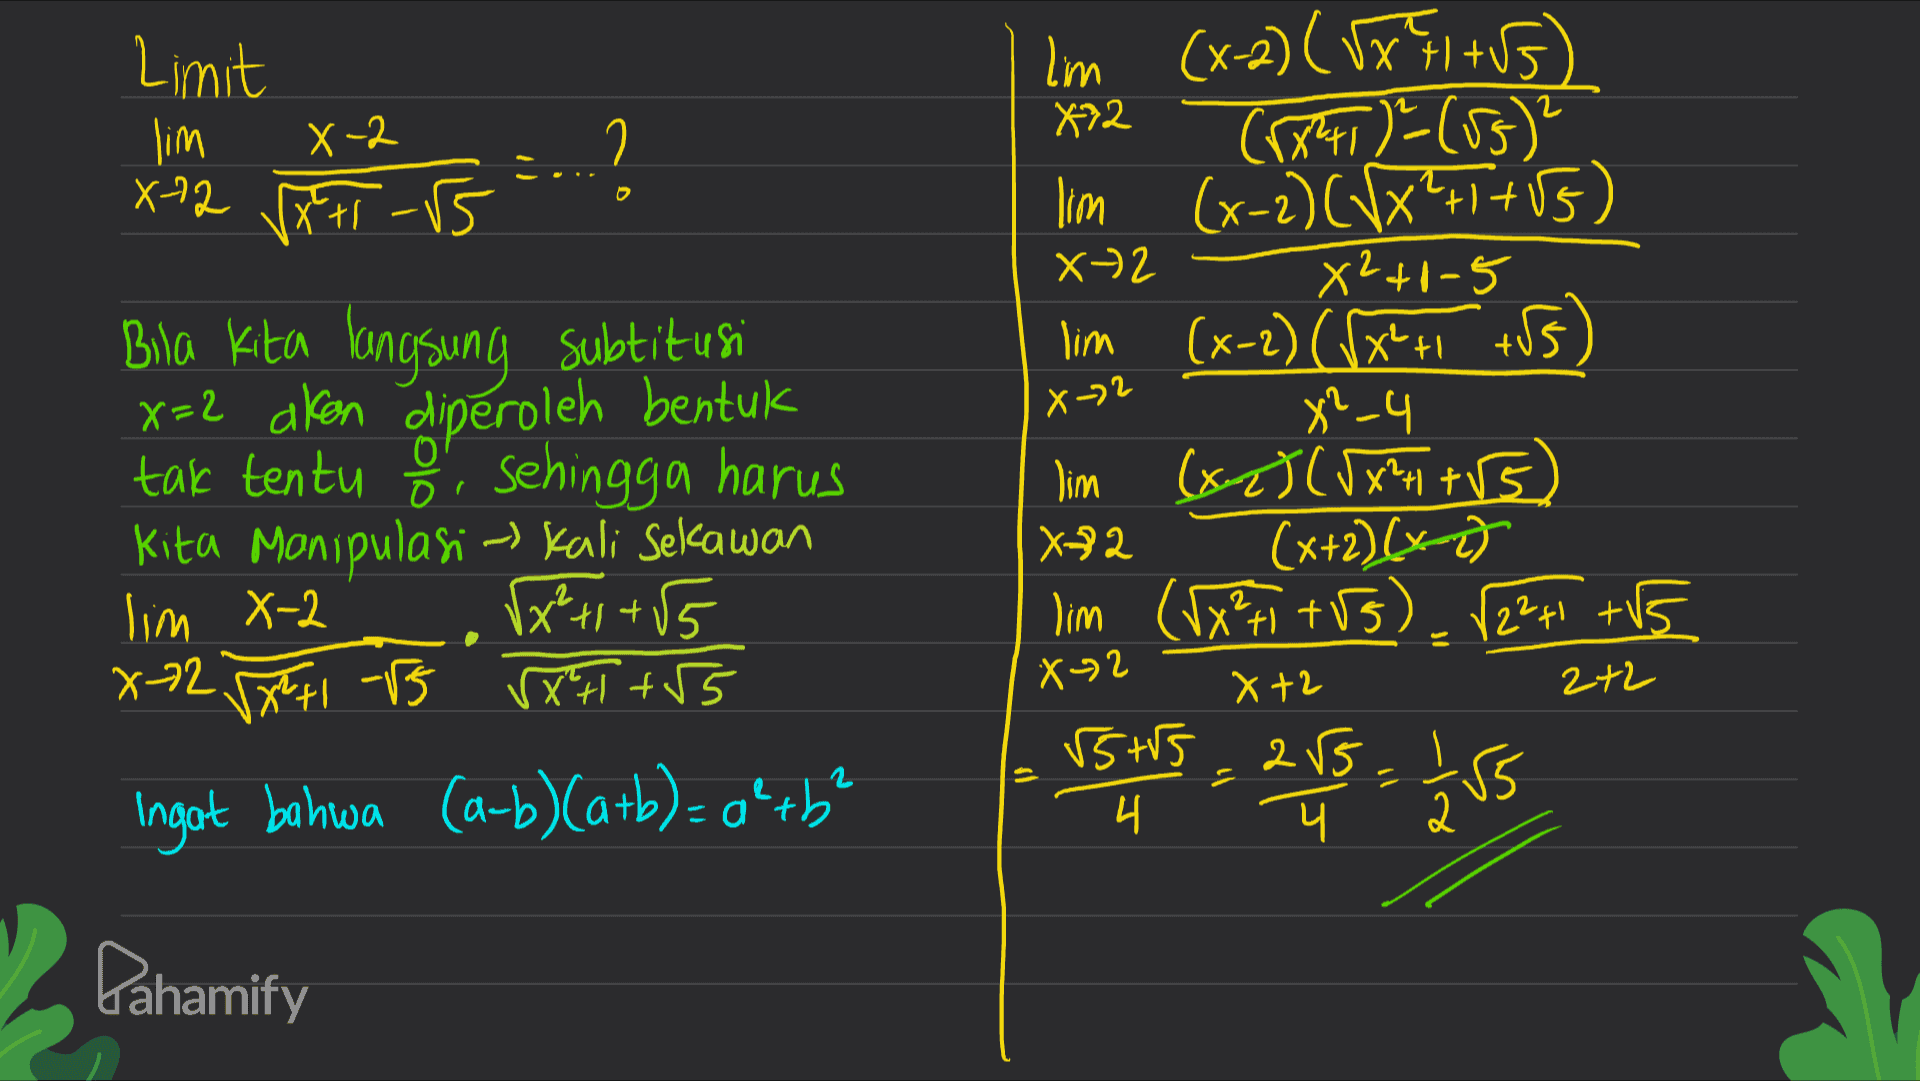 Limit
lim x→2 (x-2)/(√(x²+1) -√5) = ...?
Bila kita langsung subtitusi
x=2 akan diperoleh bentuk
tak tentu 0/0, sehingga harus
kita Manipulasi → kali sekawan
lim x→2 (x-2)/(√(x²+1) -√5) . (√(x²+1) +√5)/(√(x²+1) +√5)
Ingat bahwa (a-b)(a+b)= a²+b²
Pahamify
lim x→2 (x-2)(√(x²+1) +√5)/((√(x²+1))²-(√5)²)
lim x→2 (x-2)(√(x²+1) +√5)/(x²+1-5)
lim x→2 (x-2)(√(x²+1) +√5)/(x²-4)
lim x→2 (x-2)(√(x²+1) +√5)/((x+2)(x-2))
lim x→2 (√(x²+1) +√5)/(x+2) = (√(2²+1) +√5)/(2+2)
= (√5+√5)/4 = 2√5/4 = 1/2 √5